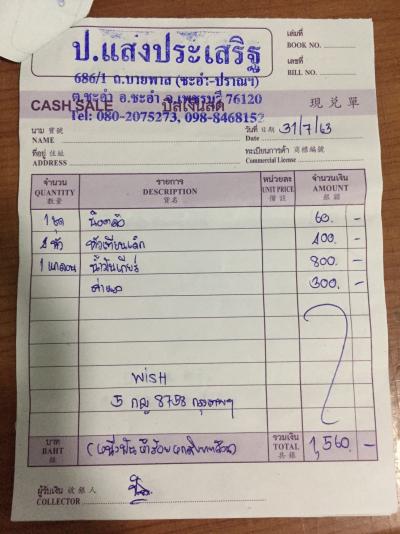 ป.แสงประเสริฐ
686/1 ถ.บายพาส (ชะอำ-ปราณฯ)
ต.ชะอำ อ.ชะอำ จ.เพชรบุรี 76120
Tel: 080-2075273, 098-8468152
เล่มที่
BOOK NO.
เลขที่
BILL NO.
CASH SALE บิลเงินสด 現兌單
นาม 寶號
NAME
วันที่ 日期 31/7/63
Date
ที่อยู่ 住址
ADDRESS
ทะเบียนการค้า 商標編號
Commercial License
จำนวน รายการ หน่วยละ จำนวนเงิน
QUANTITY DESCRIPTION UNIT PRICE AMOUNT
数量 貨名 備註 銀額
1 60. -
หัว 400. -
1 800. -
ค่าแรง 300. -
WISH
5 กญ 8798 กรุงเทพฯ
บาท รวมเงิน
BAHT (หนึ่งพันห้าร้อยหกสิบบาทถ้วน) TOTAL 1,560. -
銖 共銀
ผู้รับเงิน 收銀人
COLLECTOR